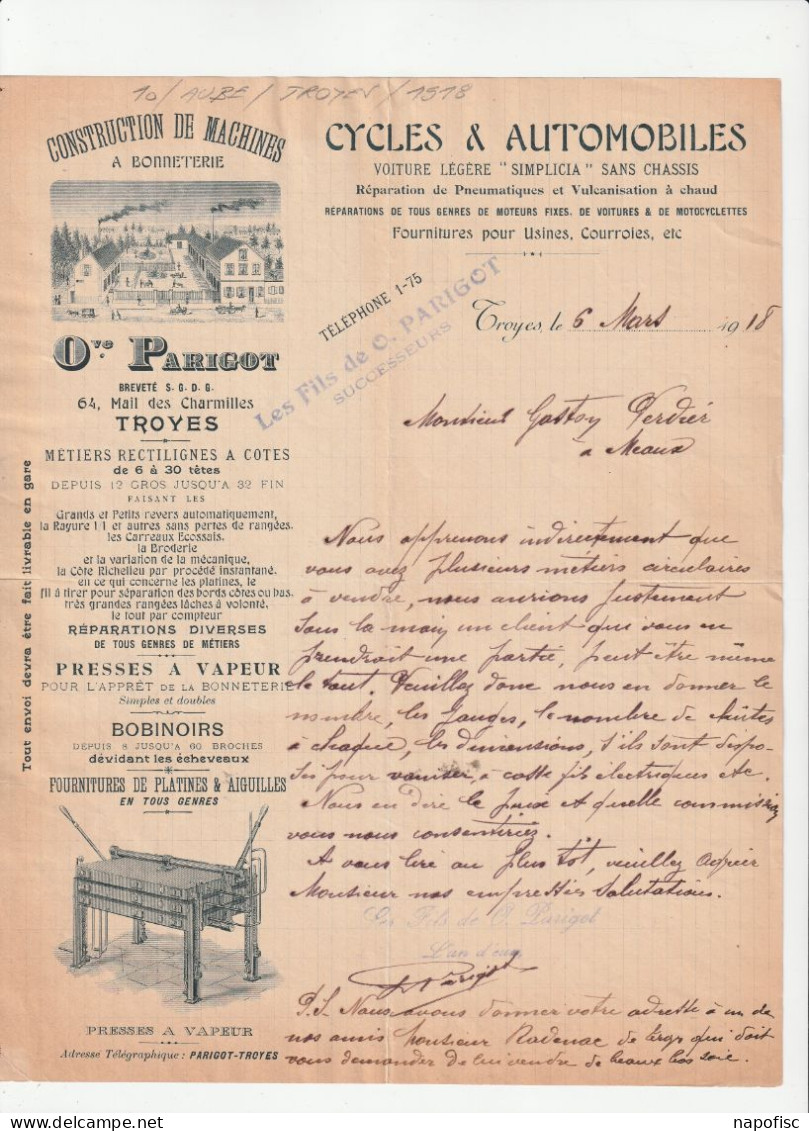 10 / AUBE / TROYES / 1918
CONSTRUCTION DE MACHINES
A BONNETERIE
Ove PARIGOT
BREVETÉ S. G. D. G.
64, Mail des Charmilles
TROYES
MÉTIERS RECTILIGNES A COTES
de 6 à 30 têtes
DEPUIS 12 GROS JUSQU'A 32 FIN
FAISANT LES
Grands et Petits revers automatiquement,
la Rayure 1/1 et autres sans pertes de rangées,
les Carreaux Ecossais,
la Broderie
et la variation de la mécanique,
la Côte Richelieu par procédé instantané,
en ce qui concerne les platines, le
fil à tirer pour séparation des bords côtes ou bas,
très grandes rangées lâches à volonté,
le tout par compteur
RÉPARATIONS DIVERSES
DE TOUS GENRES DE MÉTIERS
PRESSES A VAPEUR
POUR L'APPRÊT DE LA BONNETERIE
Simples et doubles
BOBINOIRS
DEPUIS 8 JUSQU'A 60 BROCHES
dévidant les écheveaux
FOURNITURES DE PLATINES & AIGUILLES
EN TOUS GENRES
PRESSES A VAPEUR
Adresse Télégraphique : PARIGOT-TROYES
Tout envoi devra être fait livrable en gare
CYCLES & AUTOMOBILES
VOITURE LÉGÈRE "SIMPLICIA" SANS CHASSIS
Réparation de Pneumatiques et Vulcanisation à chaud
RÉPARATIONS DE TOUS GENRES DE MOTEURS FIXES, DE VOITURES & DE MOTOCYCLETTES
Fournitures pour Usines, Courroies, etc
TÉLÉPHONE 1-75
Les Fils de O. PARIGOT
SUCCESSEURS
Troyes, le 6 Mars 1918
Monsieur Gaston Verdier
à Meaux
Nous apprenons indirectement que
vous avez plusieurs métiers circulaires
à vendre, nous aurions justement
sous la main un client qui vous en
prendrait une partie, peut être même
le tout. Veuillez donc nous en donner le
nombre, les jauges, le nombre de chûtes
à chaque, les dimensions, s'ils sont dispo-
sés pour vaniser, à casse fils électriques etc.
Nous en dire le prix et quelle commission
vous nous consentiriez.
A vous lire au plus tôt, veuillez agréer
Monsieur nos empressées salutations.
Les Fils de O. Parigot
L'un d'eux
Parigot
P.S. Nous avons donner votre adresse à un de
nos amis Monsieur Radenac de qui doit
vous demander de lui vendre de beaux bas soie.
napofisc